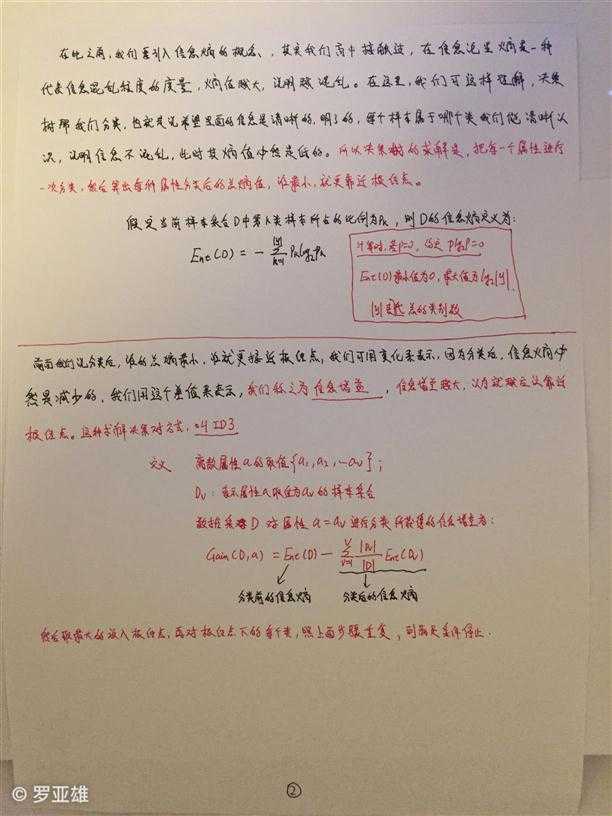 在此之前，我们要引入信息熵的概念，其实我们高中接触过，在信息论里熵是一种
代表信息混乱程度的度量，熵值越大，说明越混乱。在这里，我们可这样理解，决策
树帮我们分类，也就是说希望里面的信息是清晰的，明了的，每个样本属于哪个类我们能清晰认
识，说明信息不混乱，此时其熵值必然是低的。所以决策树的求解是，把每一个属性进行
一次分类，然后算出每种属性分类后的总熵值，谁最小，就更靠近根结点。
假定当前样本集合D中第k类样本所占的比例为Pk，则D的信息熵定义为：
Ent(D) = - ∑|y| k=1 Pk log2 Pk
计算时，若p=0，约定 plog2P=0
Ent(D)最小值为0，最大值为log2|y|.
|y|是 总的类别数
前面我们说分类后，谁的总熵最小，谁就更接近根结点，我们可用变化来表示，因为分类后，信息熵必
然是减少的，我们用这个差值来表示，我们称之为 信息增益，信息增益越大，认为就越应该靠近
根结点。这种求解决策树方式，叫ID3
定义 离散属性a的取值{a1,a2,…av}；
Dv：表示属性a取值为av的样本集合
数据集 D 对属性 a=av 进行分类所获得的信息增益为：
Gain(D,a) = Ent(D) - ∑V v=1 |Dv|/|D| Ent(Dv)
分类前的信息熵 分类后的信息熵
然后取最大的放入根结点，再对根结点下的每个类，照上面步骤重复，到满足条件停止.
②
© 罗亚雄